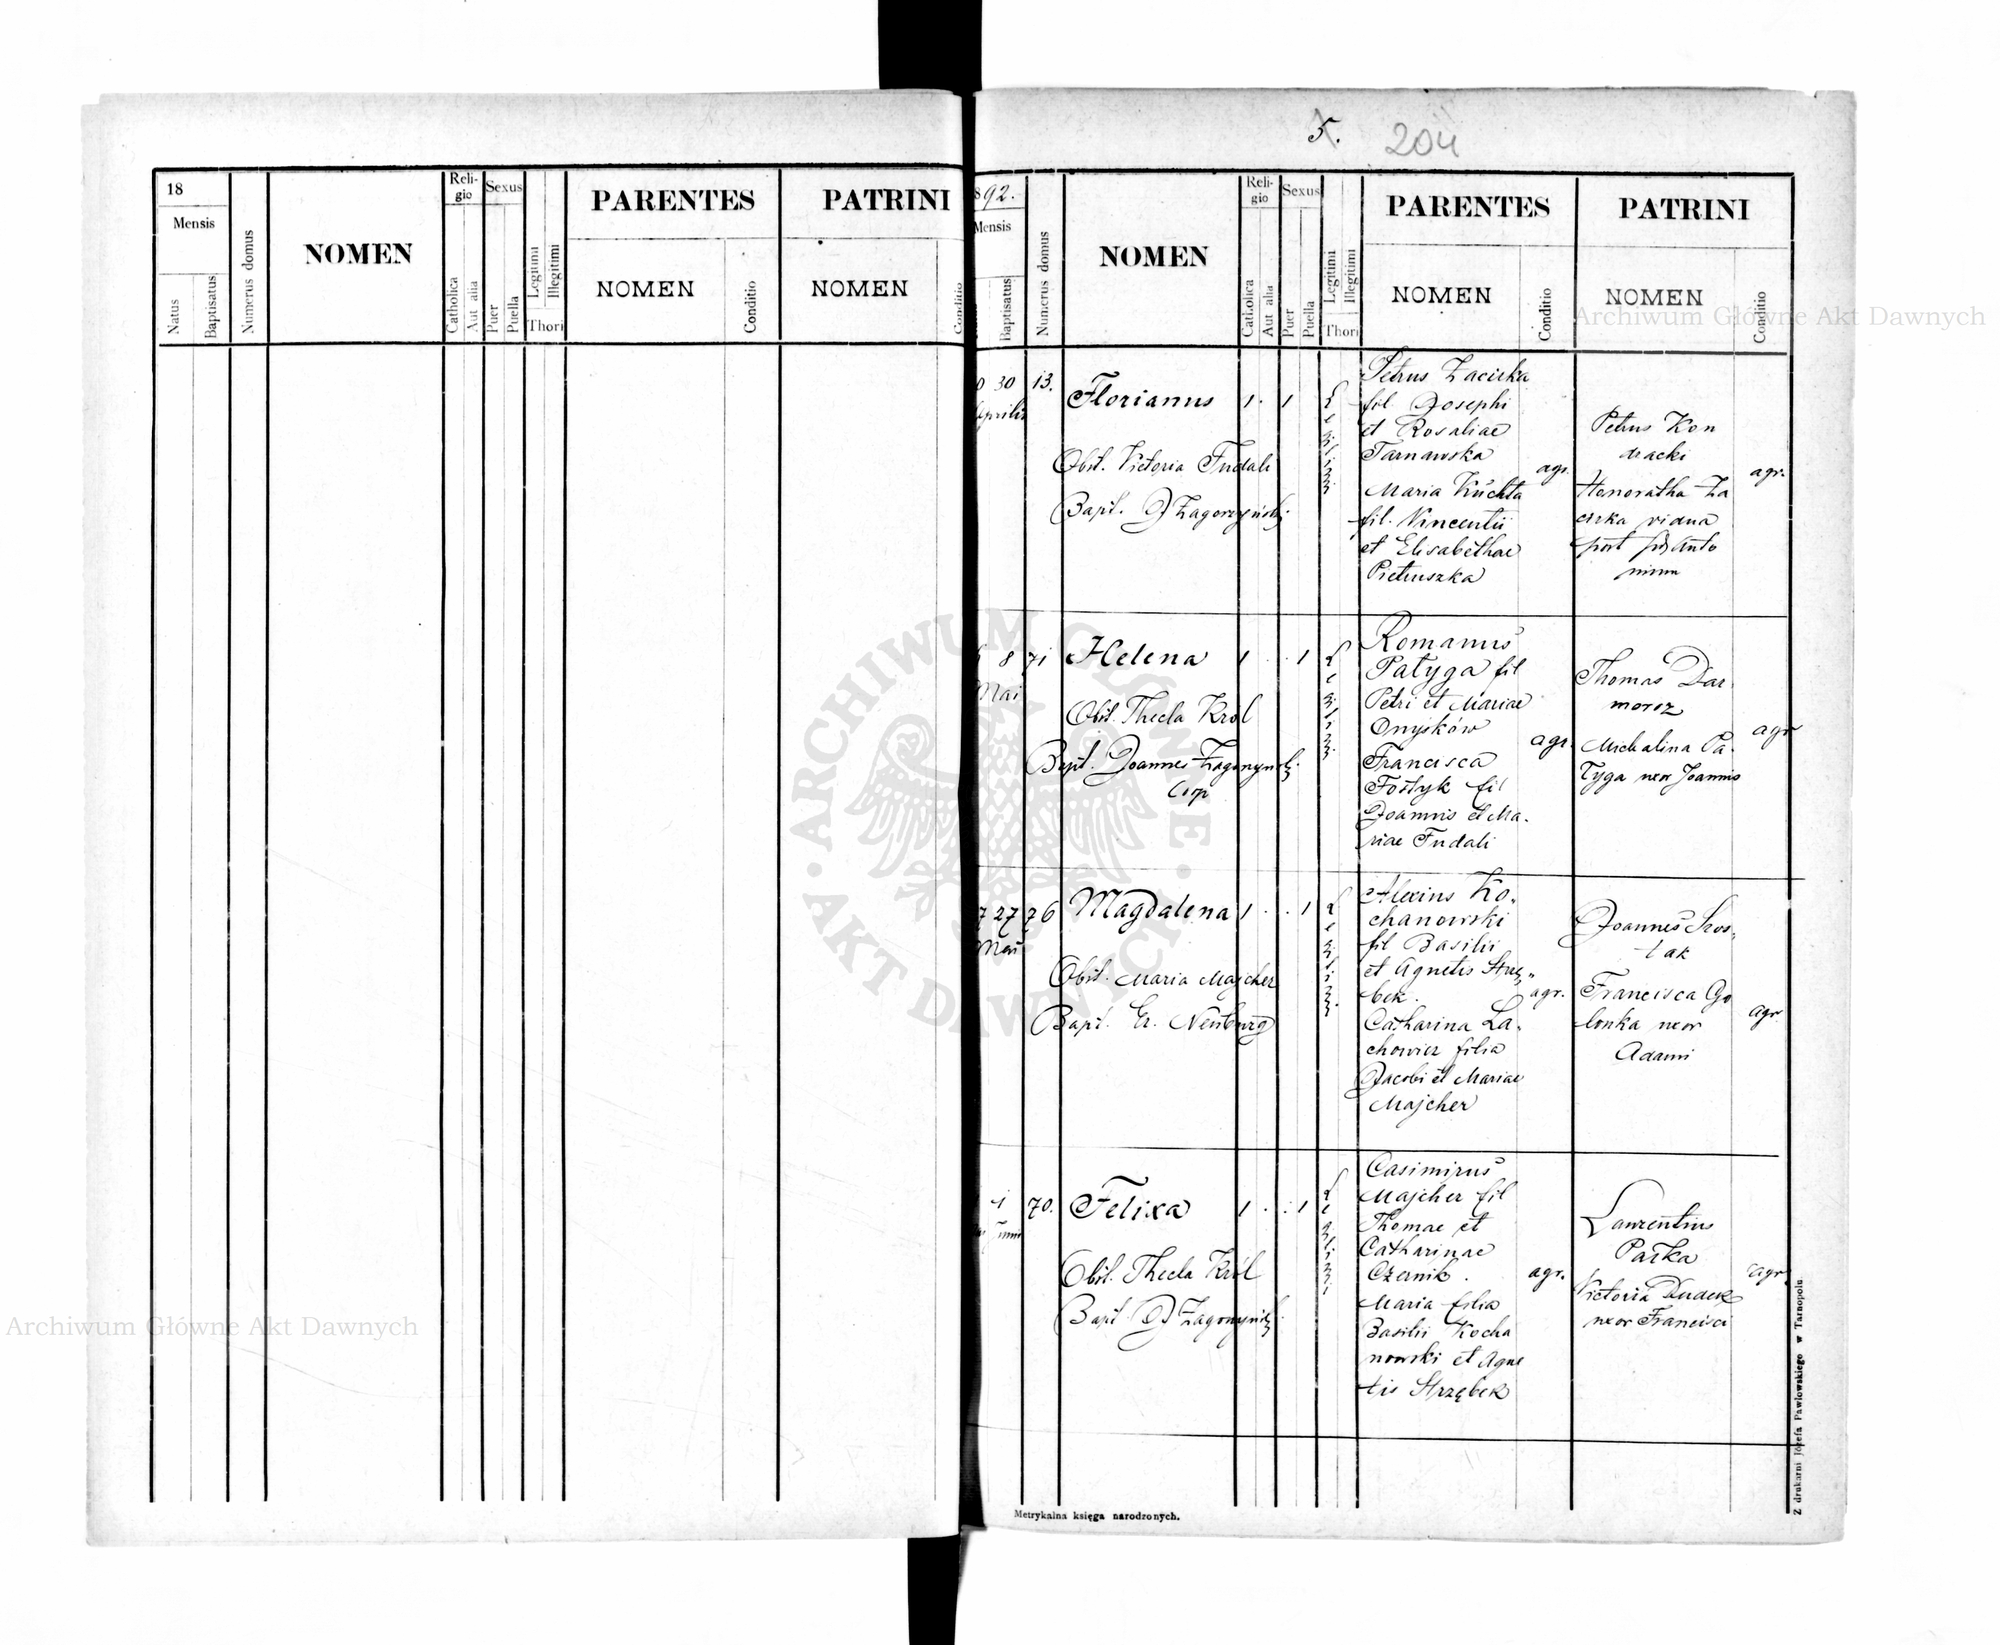 18
Mensis
Natus
Baptisatus
Numerus domus
NOMEN
Reli-
gio
Catholica
Aut alia
Sexus
Puer
Puella
Legitimi
Illegitimi
Thori
PARENTES
NOMEN
Conditio
PATRINI
NOMEN
Conditio
5. 204
892.
Mensis
Baptisatus
Numerus domus
NOMEN
Reli-
gio
Catholica
Aut alia
Sexus
Puer
Puella
Legitimi
Illegitimi
Thori
PARENTES
NOMEN
Conditio
PATRINI
NOMEN
Conditio
0 30 13. Florianus 1. 1
Aprilis
Obst. Victoria Fudali
Bapt. J Zagorzyński
Petrus Zacirka
fil. Josephi
et Rosaliae
Tarnawska
Maria Kuchta
fil. Vincentii
et Elisabethae
Pietruszka
agr.
Petrus Kon
dracki
Honoratha Za
cirka vidua
post Anto
ninum
agr.
8 71 Helena 1 . . 1
Mai
Obst. Thecla Król
Bapt. Joannes Zagorzyński
Coop
Romanus
Patyga fil
Petri et Mariae
Onysków
Francisca
Fostyk fil
Joannis et Ma-
riae Fudali
agr.
Thomas Dar-
moroz
Michalina Pa-
tyga uxor Joannis
agr
7 27 76 Magdalena 1 . . 1
Mai
Obst. Maria Majcher
Bapt. Gr. Neuburg
Alexius Ko-
chanowski
fil Basilii
et Agnetis Strzę-
bek.
Catharina La-
chowicz filia
Jacobi et Mariae
Majcher
agr.
Joannes Szos-
tak
Francisca Go
lonka uxor
Adami
agr
1 70. Felixa 1 . . 1
Juni
Obst. Thecla Król
Bapt J Zagorzyński
Casimirus
Majcher fil
Thomae et
Catharinae
Czernik.
Maria filia
Basilii Kocha
nowski et Agne
tis Strzębek
agr.
Laurentius
Patka
Victoria Dudek
uxor Francisci
agr
Metrykalna księga narodzonych.
Z drukarni Józefa Pawłowskiego w Tarnopolu.
Archiwum Główne Akt Dawnych
Archiwum Główne Akt Dawnych
ARCHIWUM GŁÓWNE AKT DAWNYCH